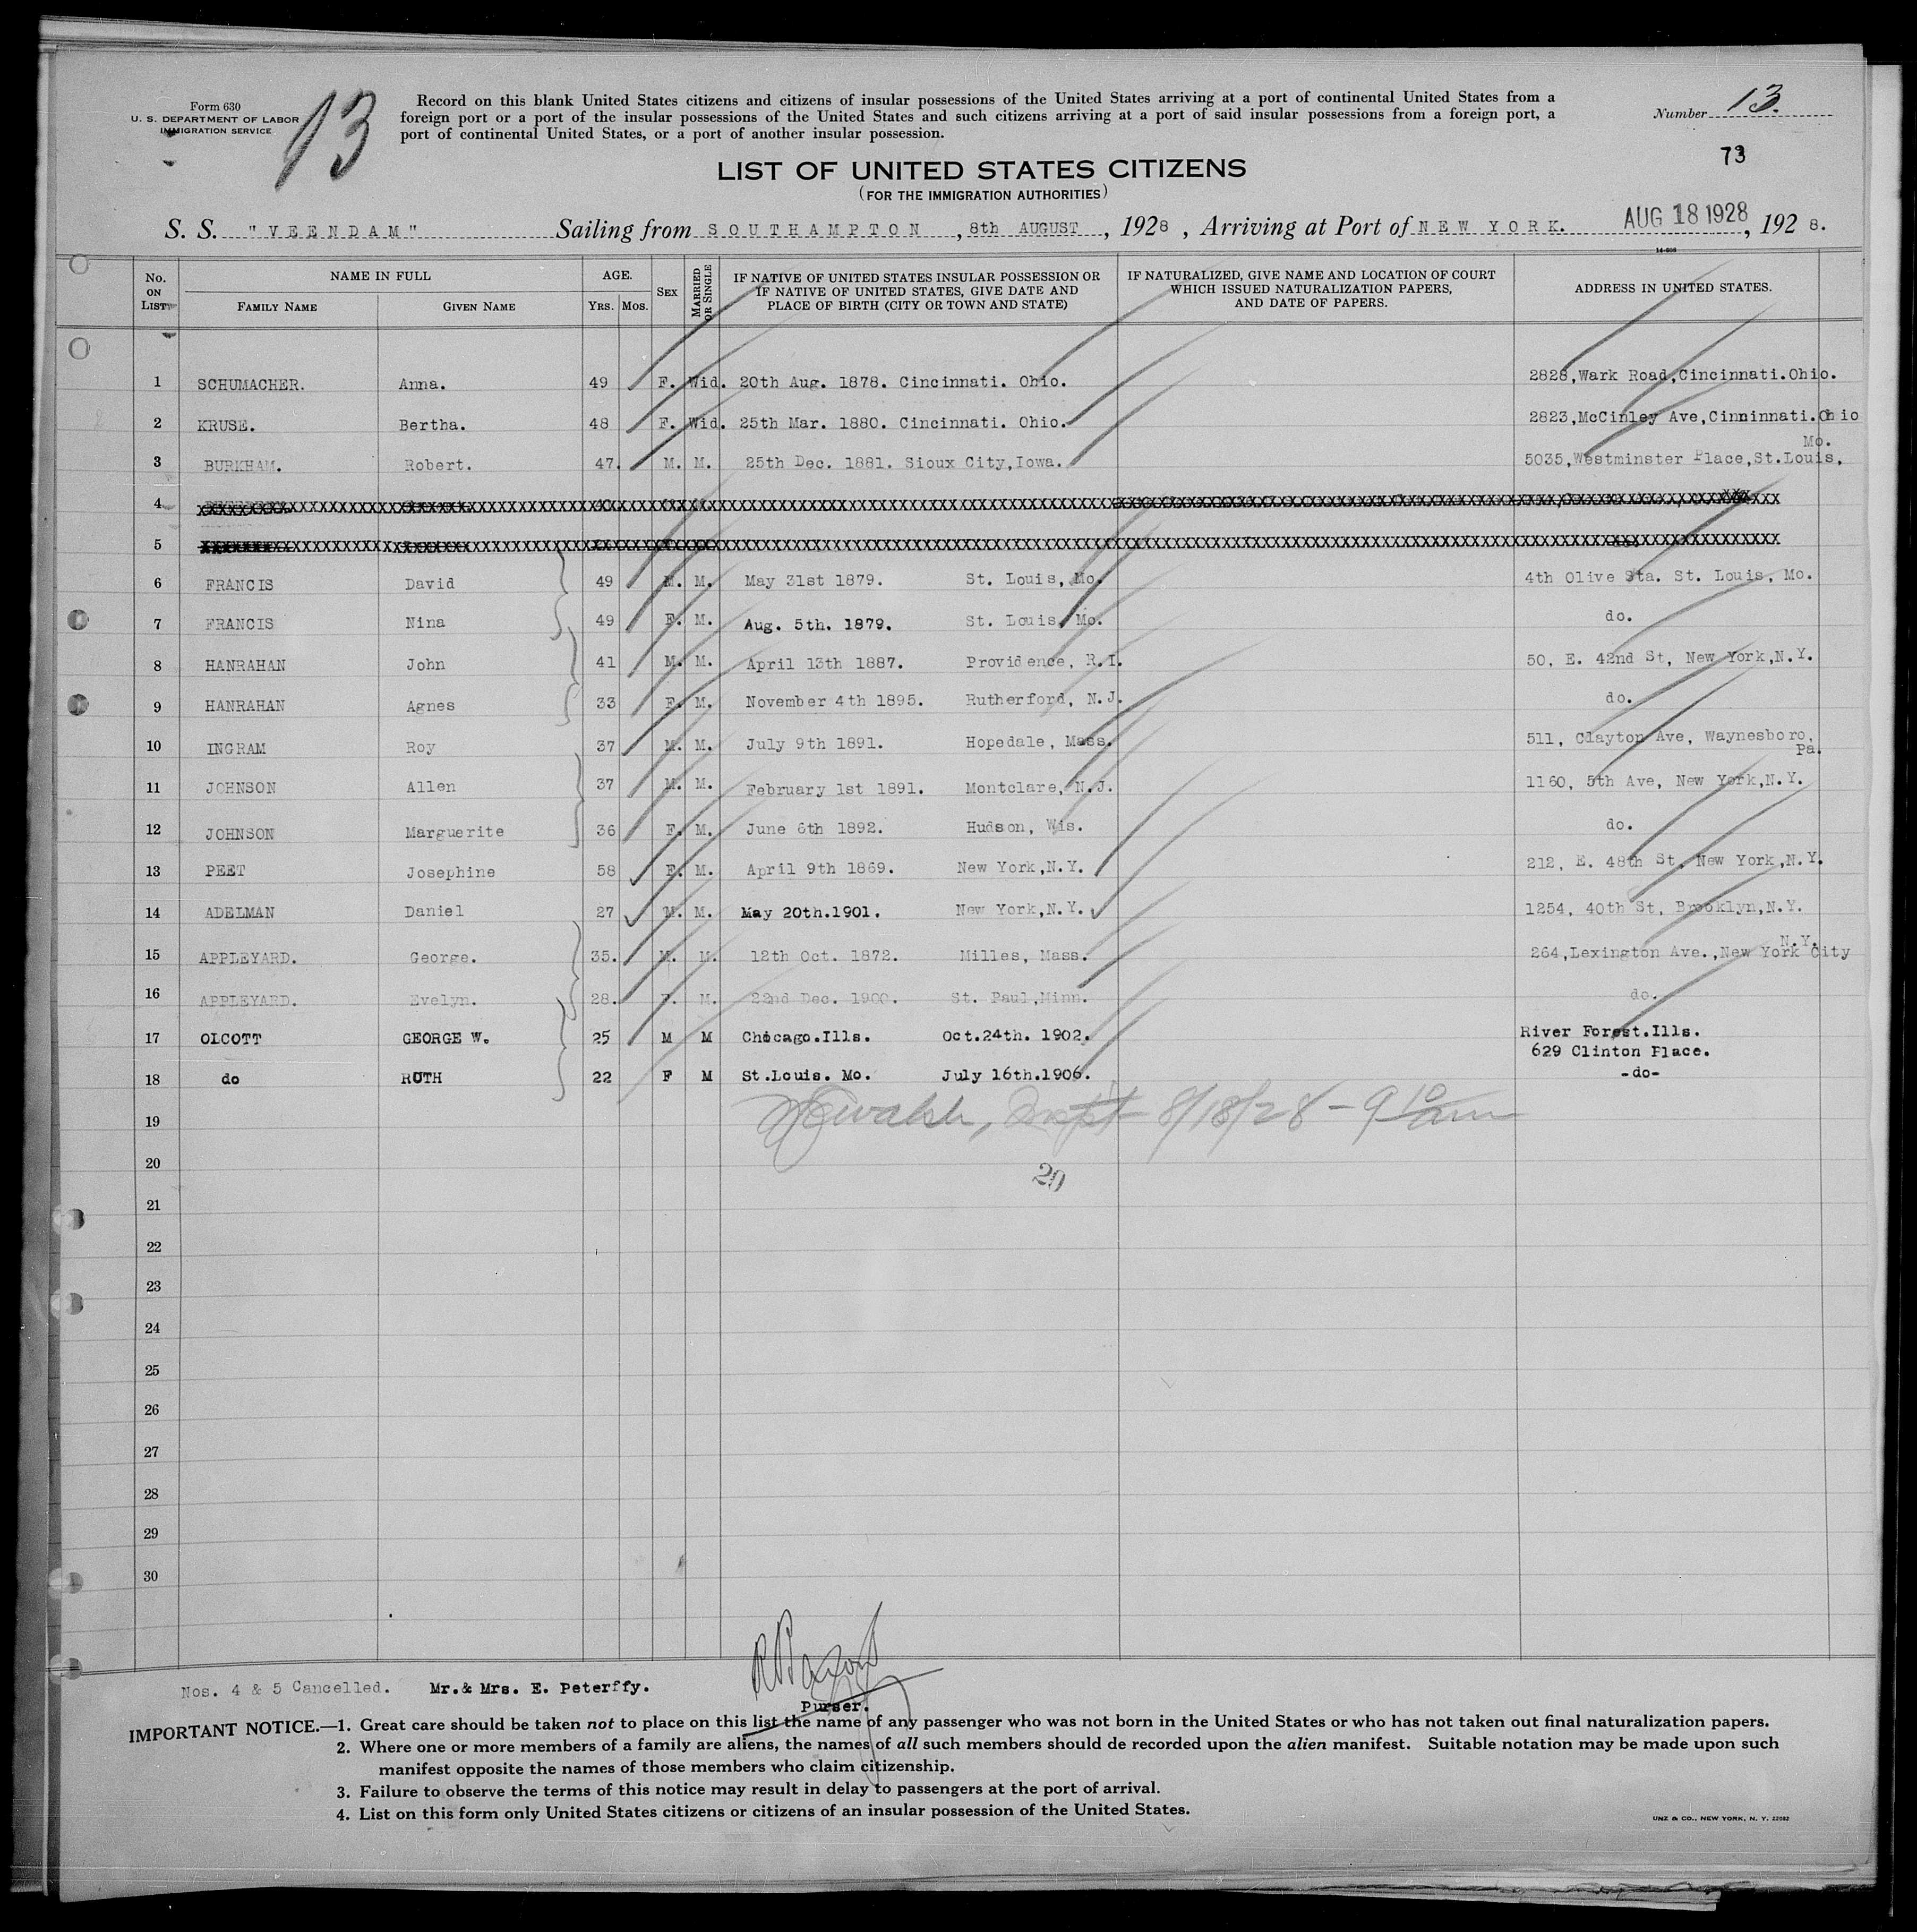 Form 630
U. S. DEPARTMENT OF LABOR
IMMIGRATION SERVICE
13
Record on this blank United States citizens and citizens of insular possessions of the United States arriving at a port of continental United States from a
foreign port or a port of the insular possessions of the United States and such citizens arriving at a port of said insular possessions from a foreign port, a
port of continental United States, or a port of another insular possession.
Number 13.
73
LIST OF UNITED STATES CITIZENS
(FOR THE IMMIGRATION AUTHORITIES)
S. S. "VEENDAM" Sailing from SOUTHAMPTON, 8th AUGUST, 1928, Arriving at Port of NEW YORK. AUG 18 1928, 1928.
14-608
No. ON LIST NAME IN FULL FAMILY NAME GIVEN NAME AGE. YRS. MOS. SEX MARRIED OR SINGLE IF NATIVE OF UNITED STATES INSULAR POSSESSION OR IF NATIVE OF UNITED STATES, GIVE DATE AND PLACE OF BIRTH (CITY OR TOWN AND STATE) IF NATURALIZED, GIVE NAME AND LOCATION OF COURT WHICH ISSUED NATURALIZATION PAPERS, AND DATE OF PAPERS. ADDRESS IN UNITED STATES.
1 SCHUMACHER. Anna. 49 F. Wid. 20th Aug. 1878. Cincinnati. Ohio. 2828,Wark Road,Cincinnati.Ohio.
2 KRUSE. Bertha. 48 F. Wid. 25th Mar. 1880. Cincinnati. Ohio. 2823,McCinley Ave,Cinninnati.Ohio
3 BURKHAM. Robert. 47. M. M. 25th Dec. 1881. Sioux City,Iowa. 5035,Westminster Place,St.Louis, Mo.
4
5
6 FRANCIS David 49 M. M. May 31st 1879. St. Louis, Mo. 4th Olive Sta. St. Louis, Mo.
7 FRANCIS Nina 49 F. M. Aug. 5th. 1879. St. Louis, Mo. do.
8 HANRAHAN John 41 M. M. April 13th 1887. Providence, R.I. 50, E. 42nd St, New York,N.Y.
9 HANRAHAN Agnes 33 F. M. November 4th 1895. Rutherford, N.J. do.
10 INGRAM Roy 37 M. M. July 9th 1891. Hopedale, Mass. 511, Clayton Ave, Waynesboro, Pa.
11 JOHNSON Allen 37 M. M. February 1st 1891. Montclare, N.J. 1160, 5th Ave, New York,N.Y.
12 JOHNSON Marguerite 36 F. M. June 6th 1892. Hudson, Wis. do.
13 PEET Josephine 58 F. M. April 9th 1869. New York,N.Y. 212, E. 48th St, New York,N.Y.
14 ADELMAN Daniel 27 M. M. May 20th.1901. New York,N.Y. 1254, 40th St, Brooklyn,N.Y.
15 APPLEYARD. George. 35. M. M. 12th Oct. 1872. Milles, Mass. 264,Lexington Ave.,New York City N.Y.
16 APPLEYARD. Evelyn. 28. F. M. 22nd Dec. 1900. St. Paul,Minn. do.
17 OLCOTT GEORGE W. 25 M M Chicago.Ills. Oct.24th. 1902. River Forest.Ills.
629 Clinton Place.
18 do RUTH 22 F M St.Louis. Mo. July 16th.1906. -do-
19 Walsh, 8/18/28 - 9 10 am
20
20
21
22
23
24
25
26
27
28
29
30
Nos. 4 & 5 Cancelled. Mr.& Mrs. E. Peterffy.
Purser.
IMPORTANT NOTICE.—1. Great care should be taken not to place on this list the name of any passenger who was not born in the United States or who has not taken out final naturalization papers.
2. Where one or more members of a family are aliens, the names of all such members should de recorded upon the alien manifest. Suitable notation may be made upon such
manifest opposite the names of those members who claim citizenship.
3. Failure to observe the terms of this notice may result in delay to passengers at the port of arrival.
4. List on this form only United States citizens or citizens of an insular possession of the United States.
UNZ & CO., NEW YORK, N. Y. 22082